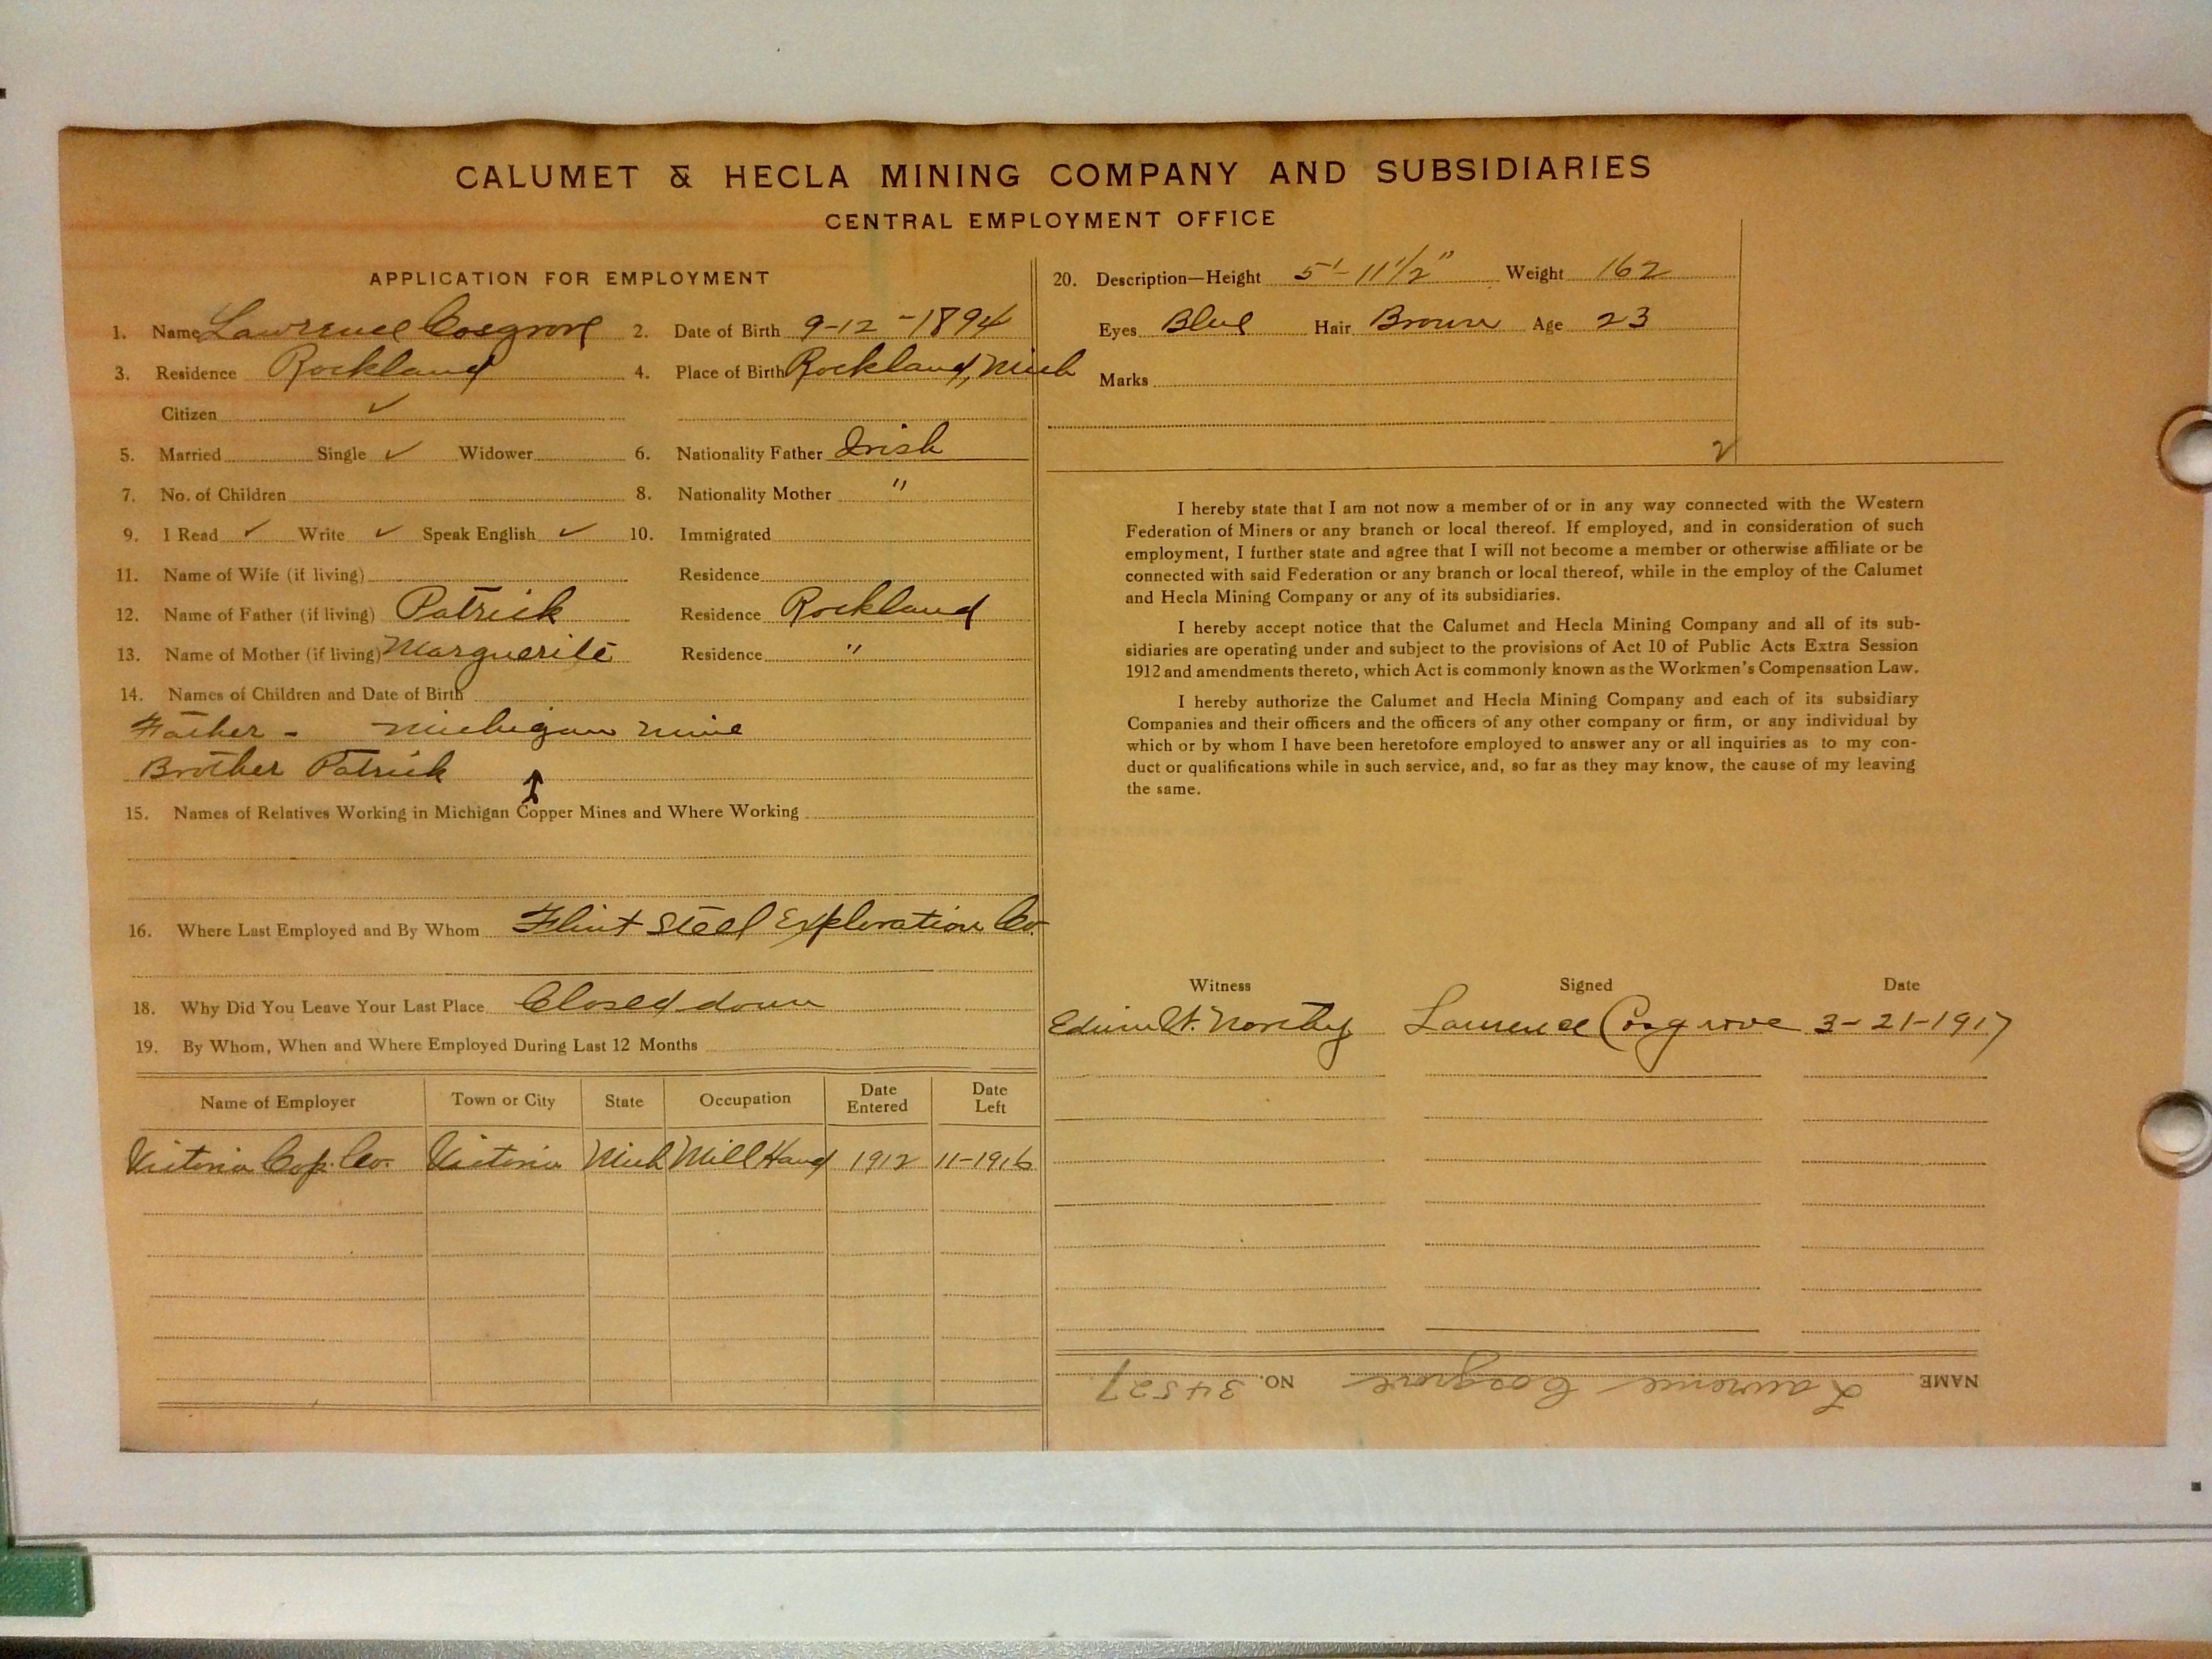 CALUMET & HECLA MINING COMPANY AND SUBSIDIARIES
CENTRAL EMPLOYMENT OFFICE
APPLICATION FOR EMPLOYMENT
1. Name Lawrence Cosgrove 2. Date of Birth 9-12-1894
3. Residence Rockland 4. Place of Birth Rockland, Mich
Citizen ✓
5. Married Single ✓ Widower 6. Nationality Father Irish
7. No. of Children 8. Nationality Mother "
9. I Read ✓ Write ✓ Speak English ✓ 10. Immigrated
11. Name of Wife (if living) Residence
12. Name of Father (if living) Patrick Residence Rockland
13. Name of Mother (if living) Marguerite Residence "
14. Names of Children and Date of Birth
Father - Michigan mine
Brother Patrick
15. Names of Relatives Working in Michigan Copper Mines and Where Working
16. Where Last Employed and By Whom Flint Steel Exploration Co.
18. Why Did You Leave Your Last Place Closed down
19. By Whom, When and Where Employed During Last 12 Months
Name of Employer Town or City State Occupation Date Entered Date Left
Victoria Cop. Co. Victoria Mich Mill Hand 1912 11-1916
20. Description—Height 5'-11 1/2" Weight 162
Eyes Blue Hair Brown Age 23
Marks
2
I hereby state that I am not now a member of or in any way connected with the Western
Federation of Miners or any branch or local thereof. If employed, and in consideration of such
employment, I further state and agree that I will not become a member or otherwise affiliate or be
connected with said Federation or any branch or local thereof, while in the employ of the Calumet
and Hecla Mining Company or any of its subsidiaries.
I hereby accept notice that the Calumet and Hecla Mining Company and all of its sub-
sidiaries are operating under and subject to the provisions of Act 10 of Public Acts Extra Session
1912 and amendments thereto, which Act is commonly known as the Workmen's Compensation Law.
I hereby authorize the Calumet and Hecla Mining Company and each of its subsidiary
Companies and their officers and the officers of any other company or firm, or any individual by
which or by whom I have been heretofore employed to answer any or all inquiries as to my con-
duct or qualifications while in such service, and, so far as they may know, the cause of my leaving
the same.
Witness Signed Date
Lawrence Cosgrove 3-21-1917
NAME Lawrence Cosgrove NO. 34527